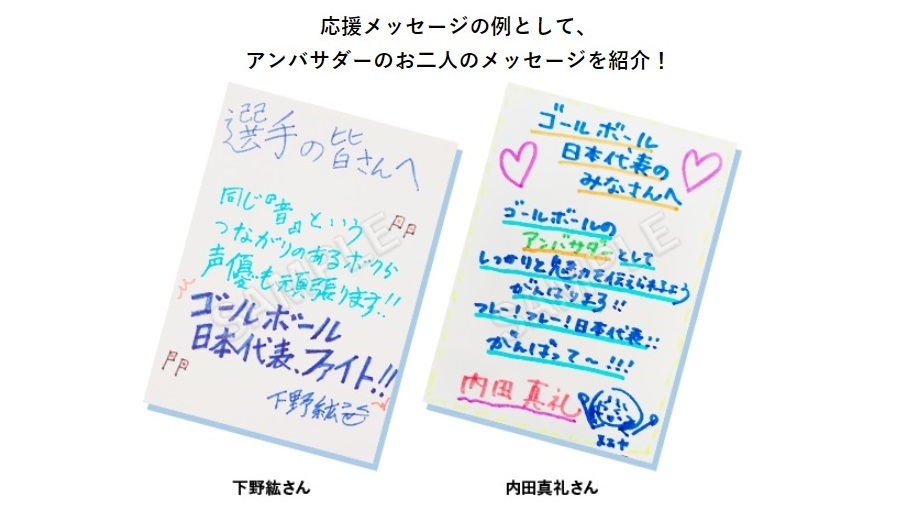 応援メッセージの例として、
アンバサダーのお二人のメッセージを紹介！
選手の皆さんへ
同じ『音』という
つながりのあるボクら
声優も頑張ります!!
ゴールボール
日本代表、ファイト!!
下野紘
SAMPLE
下野紘さん
ゴールボール
日本代表の
みなさんへ
ゴールボールの
アンバサダーとして
しっかりと魅力を伝えられるよう
がんばります!!
フレー！フレー！日本代表!!
がんばって〜!!!
内田真礼
SAMPLE
内田真礼さん